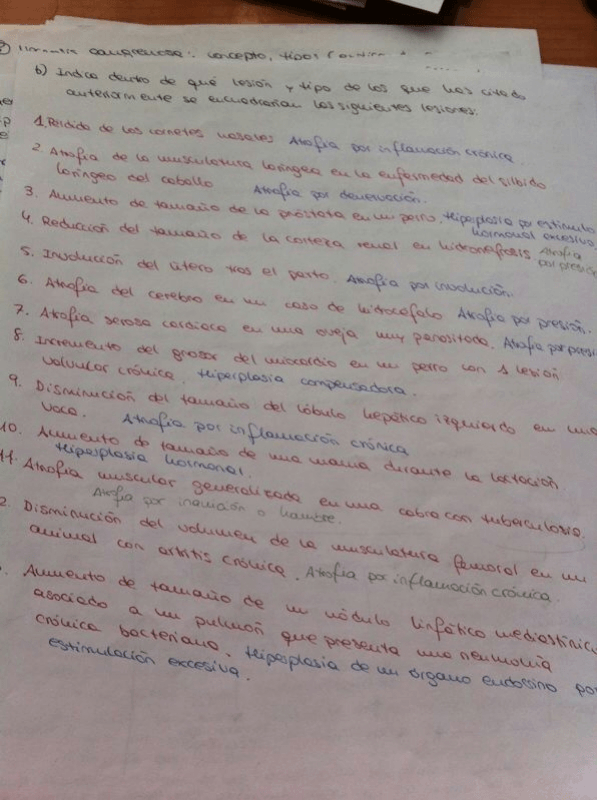 concepto, tipos
b) Indica dentro de qué lesión y tipo de los que has citado
anteriormente se encuadrarían las siguientes lesiones.
1. Pérdida de los cornetes nasales Atrofia por inflamación crónica.
2. Atrofia de la musculatura laríngea en la enfermedad del silbido
laríngeo del caballo Atrofia por denervación.
3. Aumento de tamaño de la próstata en un perro. Hiperplasia por estímulo
hormonal excesivo.
4. Reducción del tamaño de la corteza renal en hidronefrosis. Atrofia
por presión
5. Involución del útero tras el parto. Atrofia por involución.
6. Atrofia del cerebro en un caso de hidrocefalo Atrofia por presión.
7. Atrofia serosa cardiaca en una oveja muy parasitada. Atrofia por
8. Incremento del grosor del miocardio en un perro con 1 lesión
valvular crónica. Hiperplasia compensadora.
9. Disminución del tamaño del lóbulo hepático izquierdo en una
vaca. Atrofia por inflamación crónica
10. Aumento de tamaño de una mama durante la lactación
Hiperplasia hormonal.
11. Atrofia muscular generalizada en una cabra con tuberculosis.
Atrofia por inanición o hambre.
2. Disminución del volumen de la musculatura femoral en un
animal con artritis crónica. Atrofia por inflamación crónica.
Aumento de tamaño de un nódulo linfático mediastínico
asociado a un pulmón que presenta una neumonía
crónica bacteriana. Hiperplasia de un órgano endocrino por
estimulación excesiva.